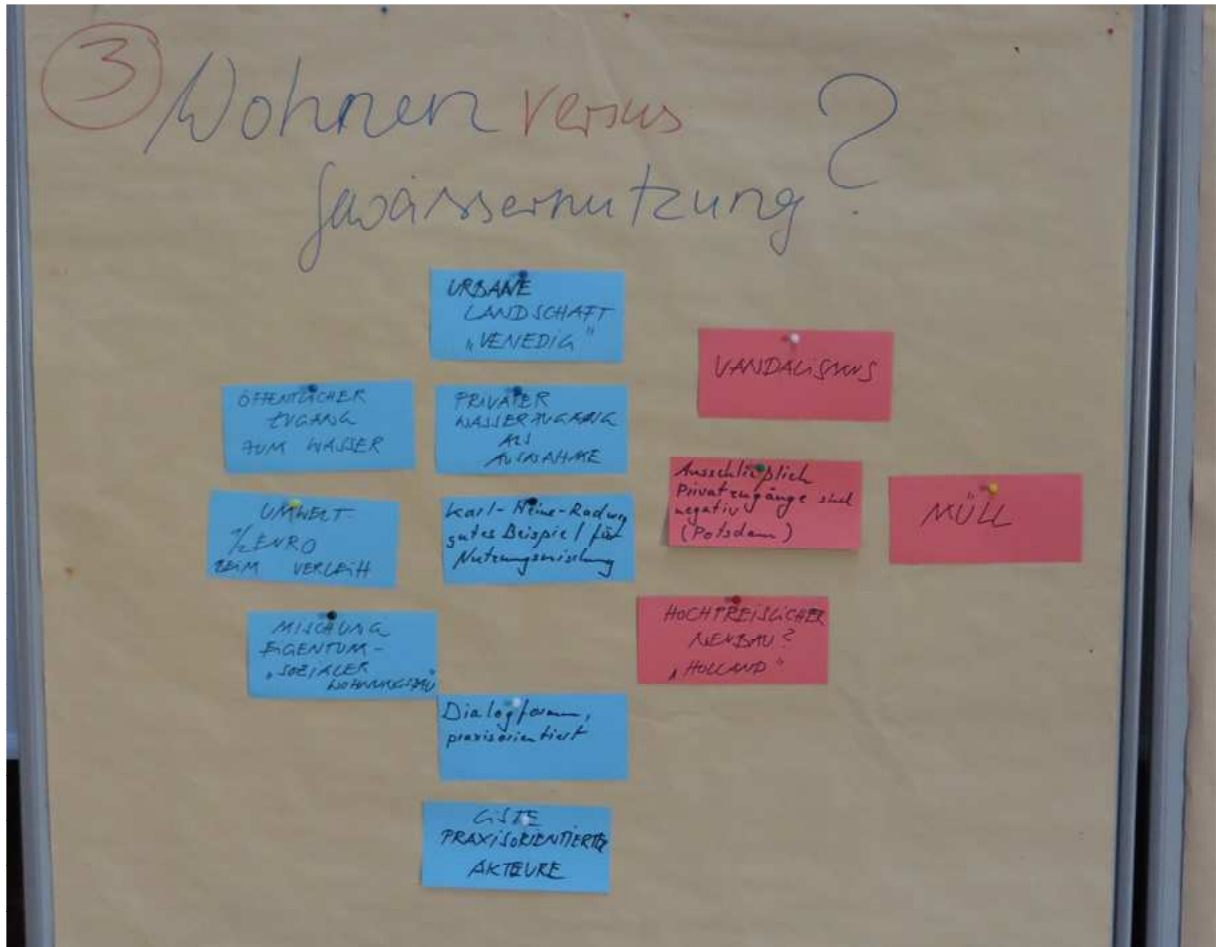 3
Wohnen versus
Gewässernutzung?
URBANE
LANDSCHAFT
„VENEDIG"
ÖFFENTLICHER
ZUGANG
ZUM WASSER
PRIVATER
WASSERZUGANG
ALS
AUSNAHME
UMWELT-
1/2 EURO
BEIM VERLEIH
Karl-Heine-Radweg
gutes Beispiel für
Nutzungsmischung
MISCHUNG
EIGENTUM -
„SOZIALER
WOHNUNGSBAU"
Dialogforum,
praxisorientiert
LISTE
PRAXISORIENTIERTER
AKTEURE
VANDALISMUS
Ausschließlich
Privatzugänge sind
negativ
(Potsdam)
MÜLL
HOCHPREISLICHER
NEUBAU?
„HOLLAND"